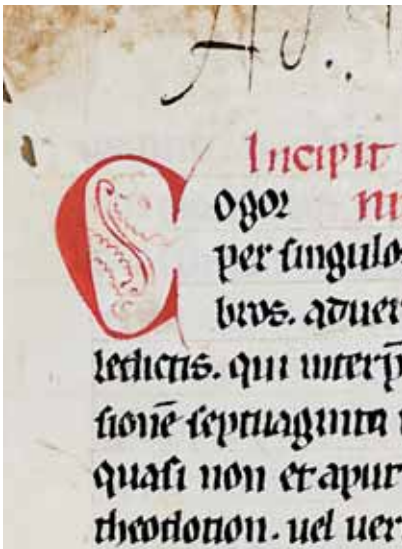 Incipit
Cogor ni
per ſingulo
bros. aduer
ledictis. qui interp̄
ſionē ſeptuaginta
quaſi non et aput
theodotion. uel uer